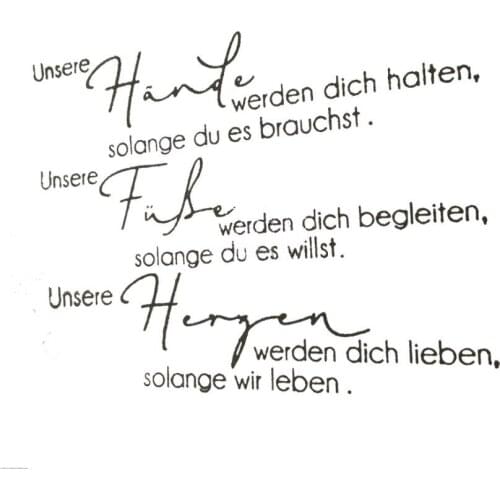 Unsere Hände werden dich halten,
solange du es brauchst.
Unsere Füße werden dich begleiten,
solange du es willst.
Unsere Herzen werden dich lieben,
solange wir leben.